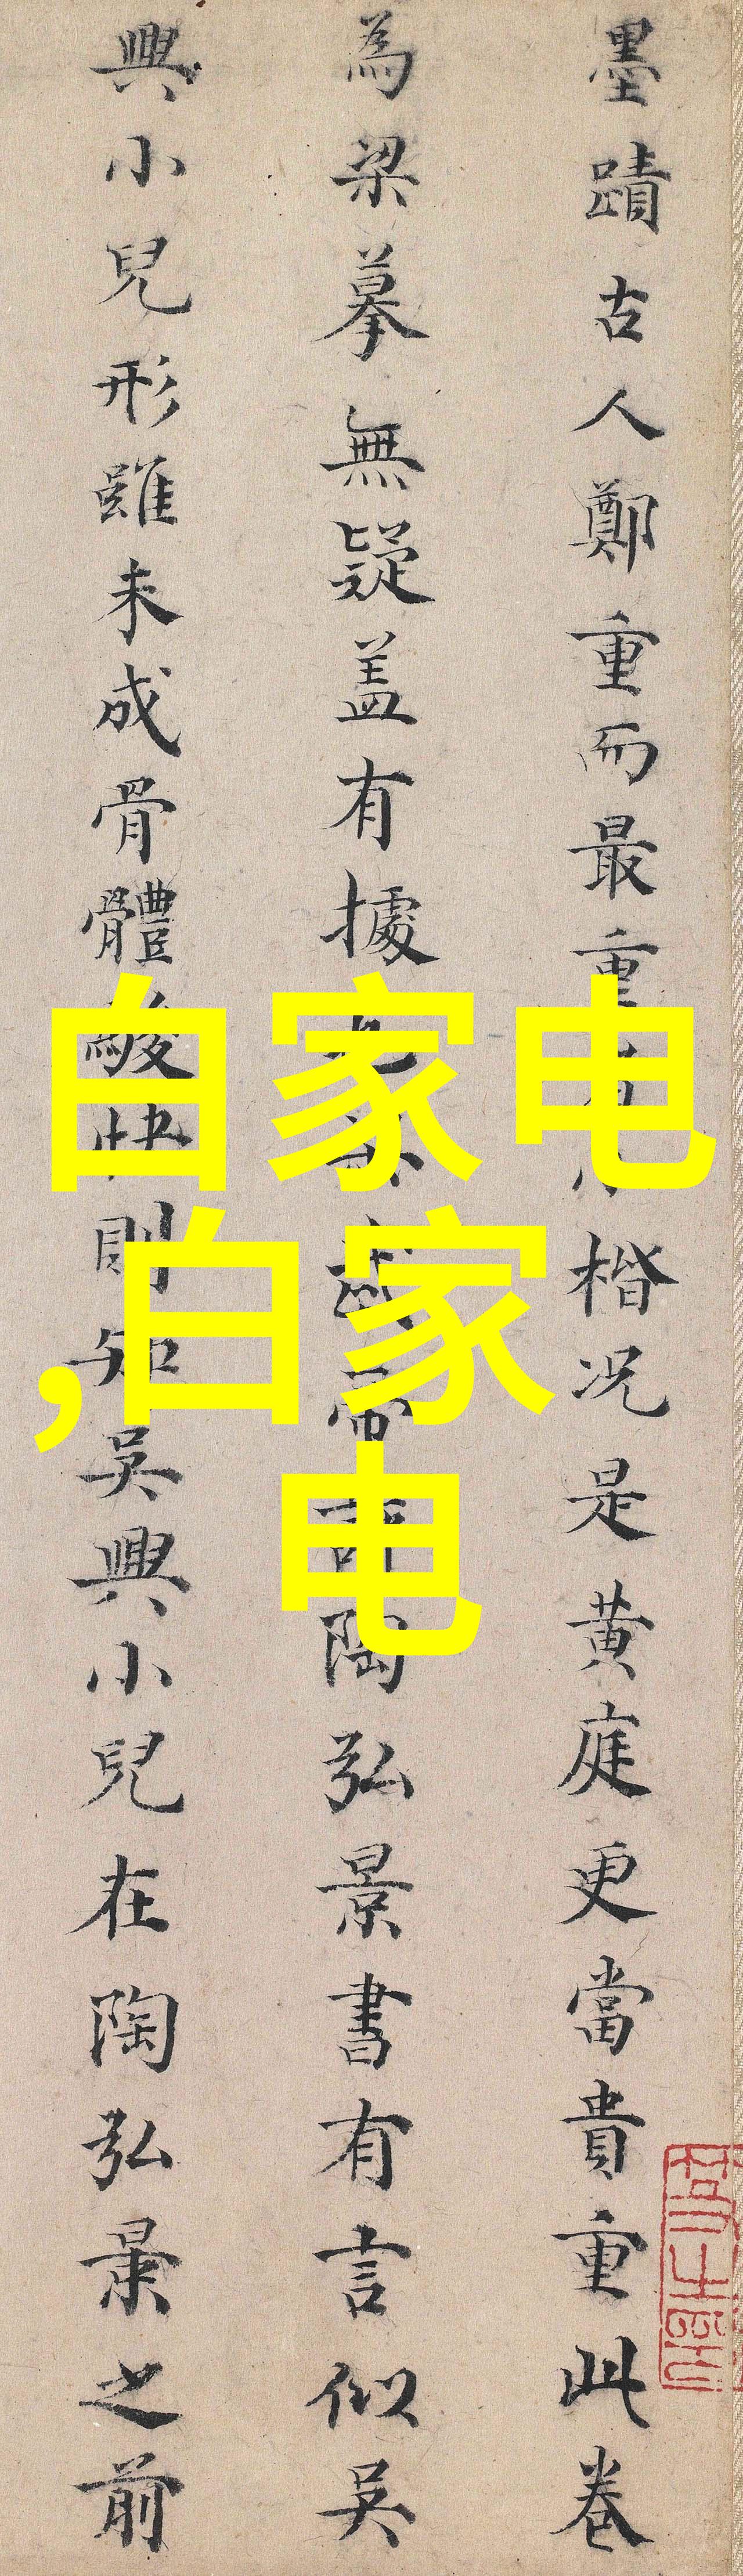 墨蹟古人鄭重而最重小楷况是黄庭更當貴重此卷
為梁摹無疑盖有據武帝陶弘景書有言似吴
興小兒形雖未成骨體駿快則知吴興小兒在陶弘景之前
白家电
,白家
电